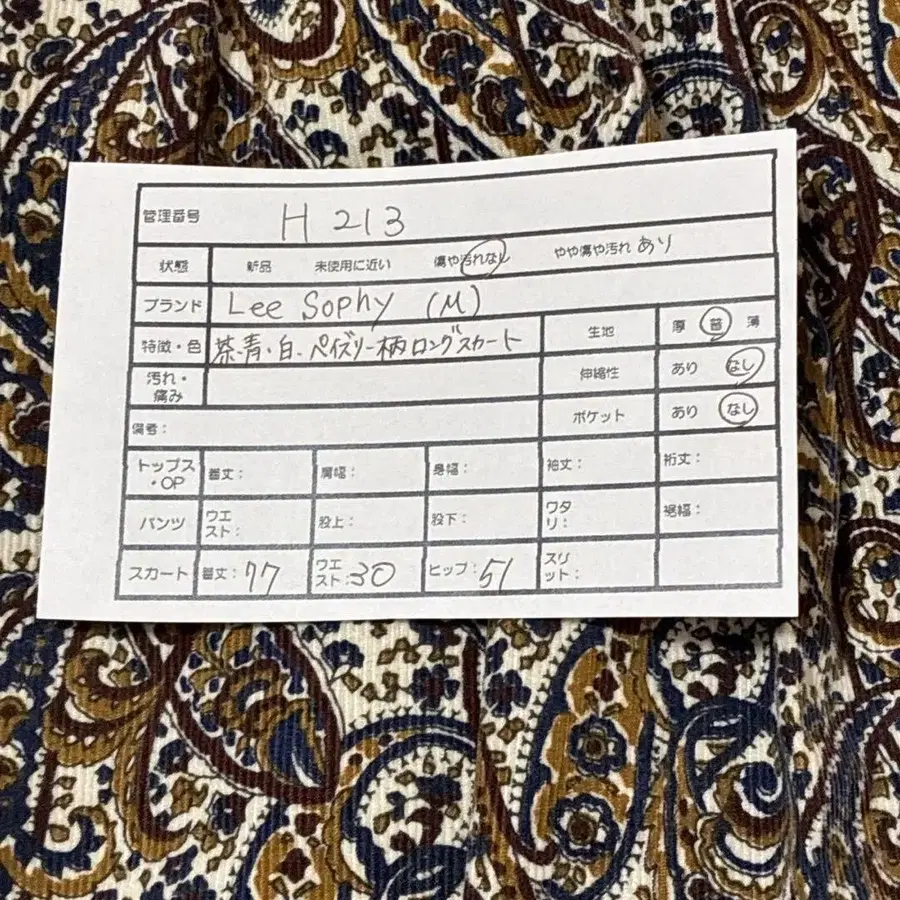 管理番号 H 213
状態 新品 未使用に近い 傷や汚れなし やや傷や汚れあり
ブランド Lee Sophy (M)
特徴・色 茶.青.白.ペイズリー柄ロングスカート 生地 厚 普 薄
汚れ・痛み 伸縮性 あり なし
備考: ポケット あり なし
トップス・OP 着丈: 肩幅: 身幅: 袖丈: 裄丈:
パンツ ウエスト: 股上: 股下: ワタリ: 裾幅:
スカート 着丈: 77 ウエスト: 30 ヒップ: 51 スリット: